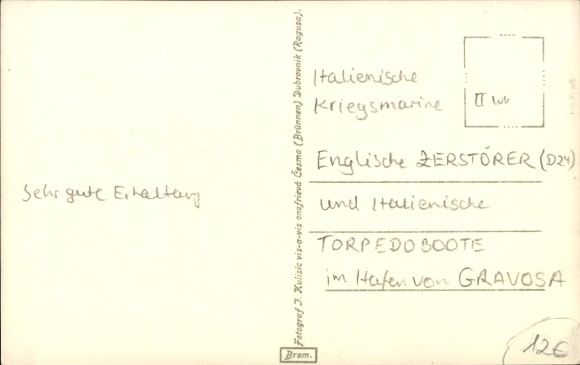 Sehr gute Erhaltung
Fotograf J. Kulisic vis-a-vis onofrieva Česma (Brünnen) Dubrovnik (Ragusa).
Brom.
Italienische
Kriegsmarine
II
Englische ZERSTÖRER (D24)
und Italienische
TORPEDOBOOTE
im Hafen von GRAVOSA
12€